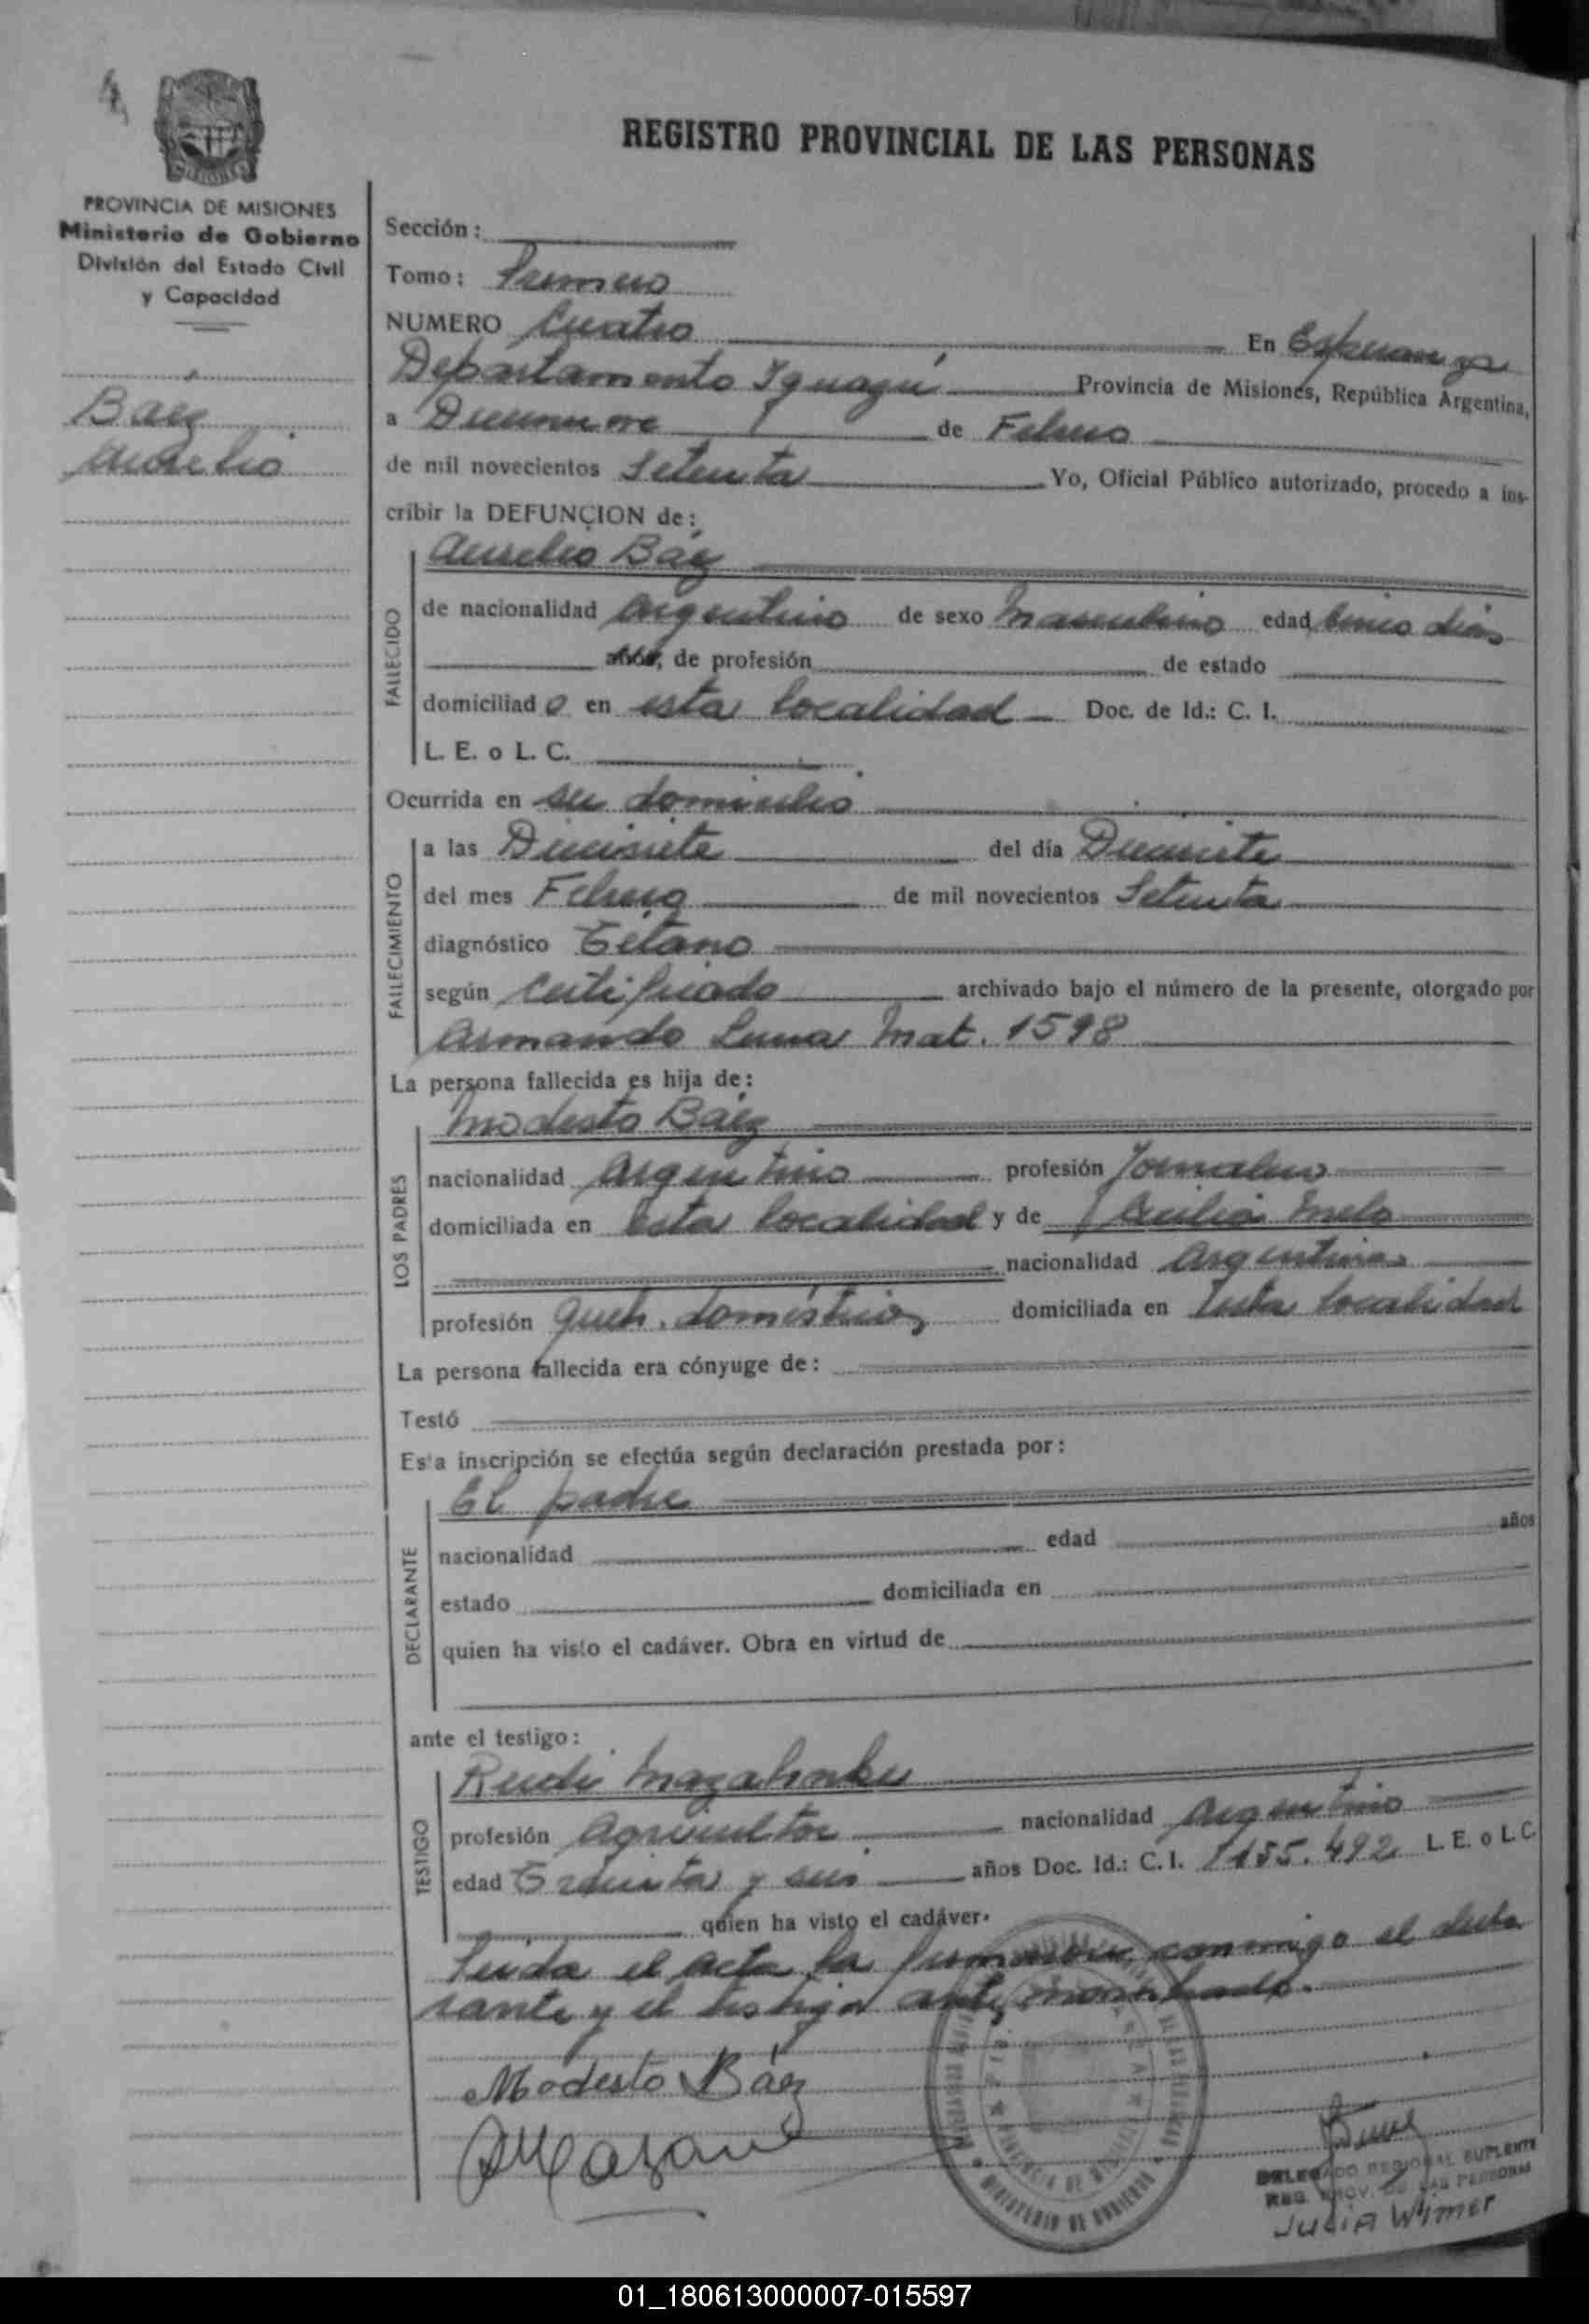 4
REGISTRO PROVINCIAL DE LAS PERSONAS
PROVINCIA DE MISIONES
Ministerio de Gobierno
División del Estado Civil
y Capacidad
Baez
Aurelio
Sección:
Tomo: Primero
NUMERO Cuatro En Esperanza
Departamento Iguazú Provincia de Misiones, República Argentina,
a Diecinueve de Febrero
de mil novecientos Setenta Yo, Oficial Público autorizado, procedo a ins-
cribir la DEFUNCION de:
Aurelio Báez
FALLECIDO
de nacionalidad Argentino de sexo Masculino edad Cinco días
años, de profesión de estado
domiciliado en esta localidad Doc. de Id.: C. I.
L. E. o L. C.
Ocurrida en su domicilio
FALLECIMIENTO
a las Diecisiete del día Diecisiete
del mes Febrero de mil novecientos Setenta
diagnóstico Tétano
según Certificado archivado bajo el número de la presente, otorgado por
Armando Luna Mat. 1598
La persona fallecida es hija de:
LOS PADRES
Modesto Báez
nacionalidad Argentino profesión Jornalero
domiciliada en esta localidad y de Melo
nacionalidad Argentina
profesión Queh. domésticos domiciliada en Esta localidad
La persona fallecida era cónyuge de:
Testó
Esta inscripción se efectúa según declaración prestada por:
DECLARANTE
El padre
nacionalidad edad años
estado domiciliada en
quien ha visto el cadáver. Obra en virtud de
ante el testigo:
TESTIGO
Rudi
profesión Agricultor nacionalidad Argentino
edad Treinta y seis años Doc. Id.: C. I. 1155.492 L. E. o L. C.
quien ha visto el cadáver.
Leida el acta la firman conmigo el decla
rante y el testigo antes mencionado.
Modesto Báez
MINISTERIO DE GOBIERNO
PROVINCIA DE MISIONES
DELEGADO REGIONAL SUPLENTE
REG. PROV. DE LAS PERSONAS
Julia Wimer
01_180613000007-015597